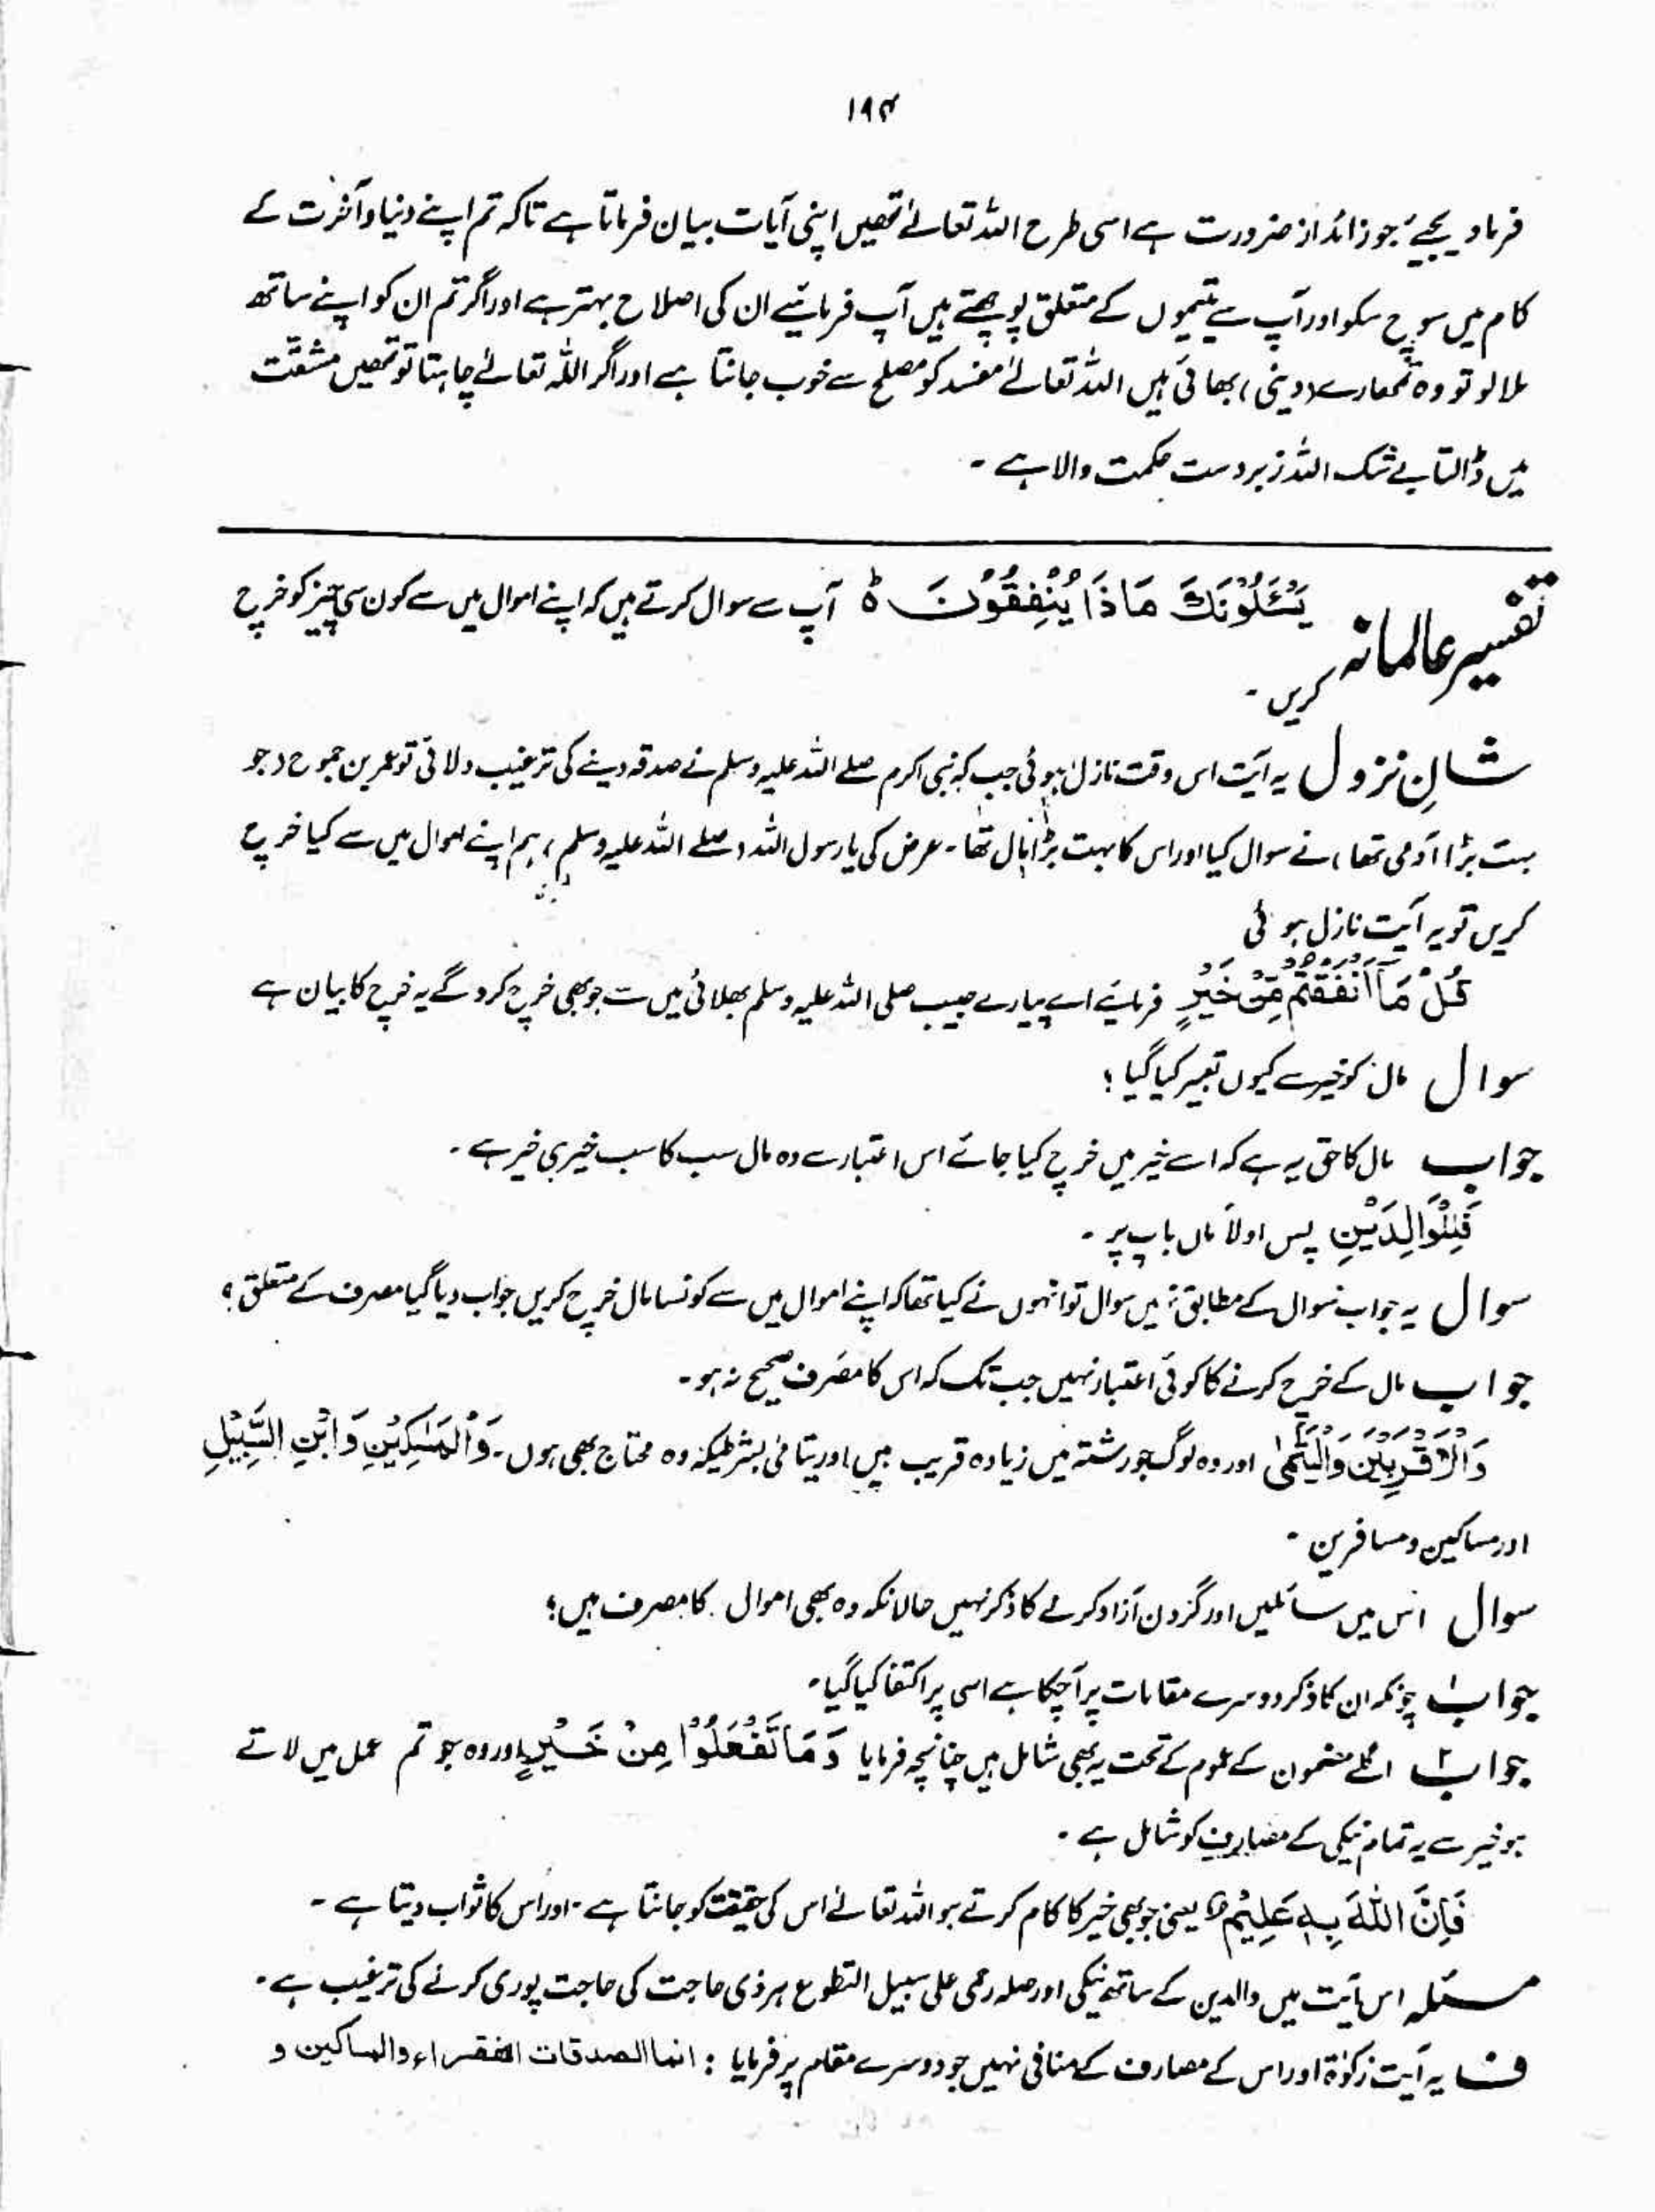 ۱۹۴
فرما دیجیے جو زائد از ضرورت ہے اسی طرح اللہ تعالےٰ تمھیں اپنی آیات بیان فرماتا ہے تاکہ تم اپنے دنیا و آخرت کے
کام میں سوچ سکو اور آپ سے یتیموں کے متعلق پوچھتے ہیں آپ فرمائیے ان کی اصلاح بہتر ہے اور اگر تم ان کو اپنے ساتھ
ملا لو تو وہ تمھارے (دینی) بھائی ہیں اللہ تعالےٰ مفسد کو مصلح سے خوب جانتا ہے اور اگر اللہ تعالےٰ چاہتا تو تمھیں مشقّت
میں ڈالتا بے شک اللہ زبردست حکمت والا ہے ۔
تفسیر عالمانہ يَسْئَلُوْنَكَ مَاذَا يُنْفِقُوْنَ ہ آپ سے سوال کرتے ہیں کہ اپنے اموال میں سے کون سی چیز کو خرچ
کریں ۔
شانِ نزول یہ آیت اس وقت نازل ہوئی جب کہ نبی اکرم صلے اللہ علیہ وسلم نے صدقہ دینے کی ترغیب دلائی تو عمر بن جموح (جو
بہت بڑا آدمی تھا) نے سوال کیا اور اس کا بہت بڑا مال تھا ۔ عرض کی یا رسول اللہ (صلے اللہ علیہ وسلم) ہم اپنے اموال میں سے کیا خرچ
کریں تو یہ آیت نازل ہوئی
قُلْ مَآ اَنْفَقْتُمْ مِّنْ خَيْرٍ فرمائیے اے پیارے حبیب صلی اللہ علیہ وسلم بھلائی میں سے جو بھی خرچ کرو گے یہ خرچ کا بیان ہے
سوال مال کو خیر سے کیوں تعبیر کیا گیا ؟
جواب مال کا حق یہ ہے کہ اسے خیر میں خرچ کیا جائے اس اعتبار سے وہ مال سب کا سب خیر ہی خیر ہے ۔
فَلِلْوَالِدَيْنِ پس اولاً ماں باپ پر ۔
سوال یہ جواب سوال کے مطابق نہیں سوال تو انہوں نے کیا تھا کہ اپنے اموال میں سے کونسا مال خرچ کریں جواب دیا گیا مصرف کے متعلق ؟
جواب مال کے خرچ کرنے کا کوئی اعتبار نہیں جب تک کہ اس کا مصرف صحیح نہ ہو ۔
وَالْاَقْرَبِيْنَ وَالْيَتٰمٰى اور وہ لوگ جو رشتہ میں زیادہ قریب ہیں اور یتامٰی بشرطیکہ وہ محتاج بھی ہوں ۔ وَالْمَسٰكِيْنِ وَابْنِ السَّبِيْلِ
اور مساکین و مسافرین ۔
سوال اس میں سائلیں اور گردن آزاد کرنے کا ذکر نہیں حالانکہ وہ بھی اموال کا مصرف ہیں ؟
جواب ۱ چونکہ ان کا ذکر دوسرے مقامات پر آچکا ہے اسی پر اکتفا کیا گیا ۔
جواب ۲ اگلے مضمون کے عموم کے تحت یہ بھی شامل ہیں چنانچہ فرمایا وَمَا تَفْعَلُوْا مِنْ خَيْرٍ اور وہ جو تم عمل میں لاتے
ہو خیر سے یہ تمام نیکی کے مصارف کو شامل ہے ۔
فَاِنَّ اللّٰهَ بِهٖ عَلِيْمٌ ہ یعنی جو بھی خیر کا کام کرتے ہو اللہ تعالےٰ اس کی حقیقت کو جانتا ہے ۔ اور اس کا ثواب دیتا ہے ۔
مسئلہ اس آیت میں والدین کے ساتھ نیکی اور صلہ رحمی علی سبیل التطوع ہر ذی حاجت کی حاجت پوری کرنے کی ترغیب ہے ۔
ف یہ آیت زکوٰۃ اور اس کے مصارف کے منافی نہیں جو دوسرے مقام پر فرمایا : انما الصدقات الفقراء والمساکین و